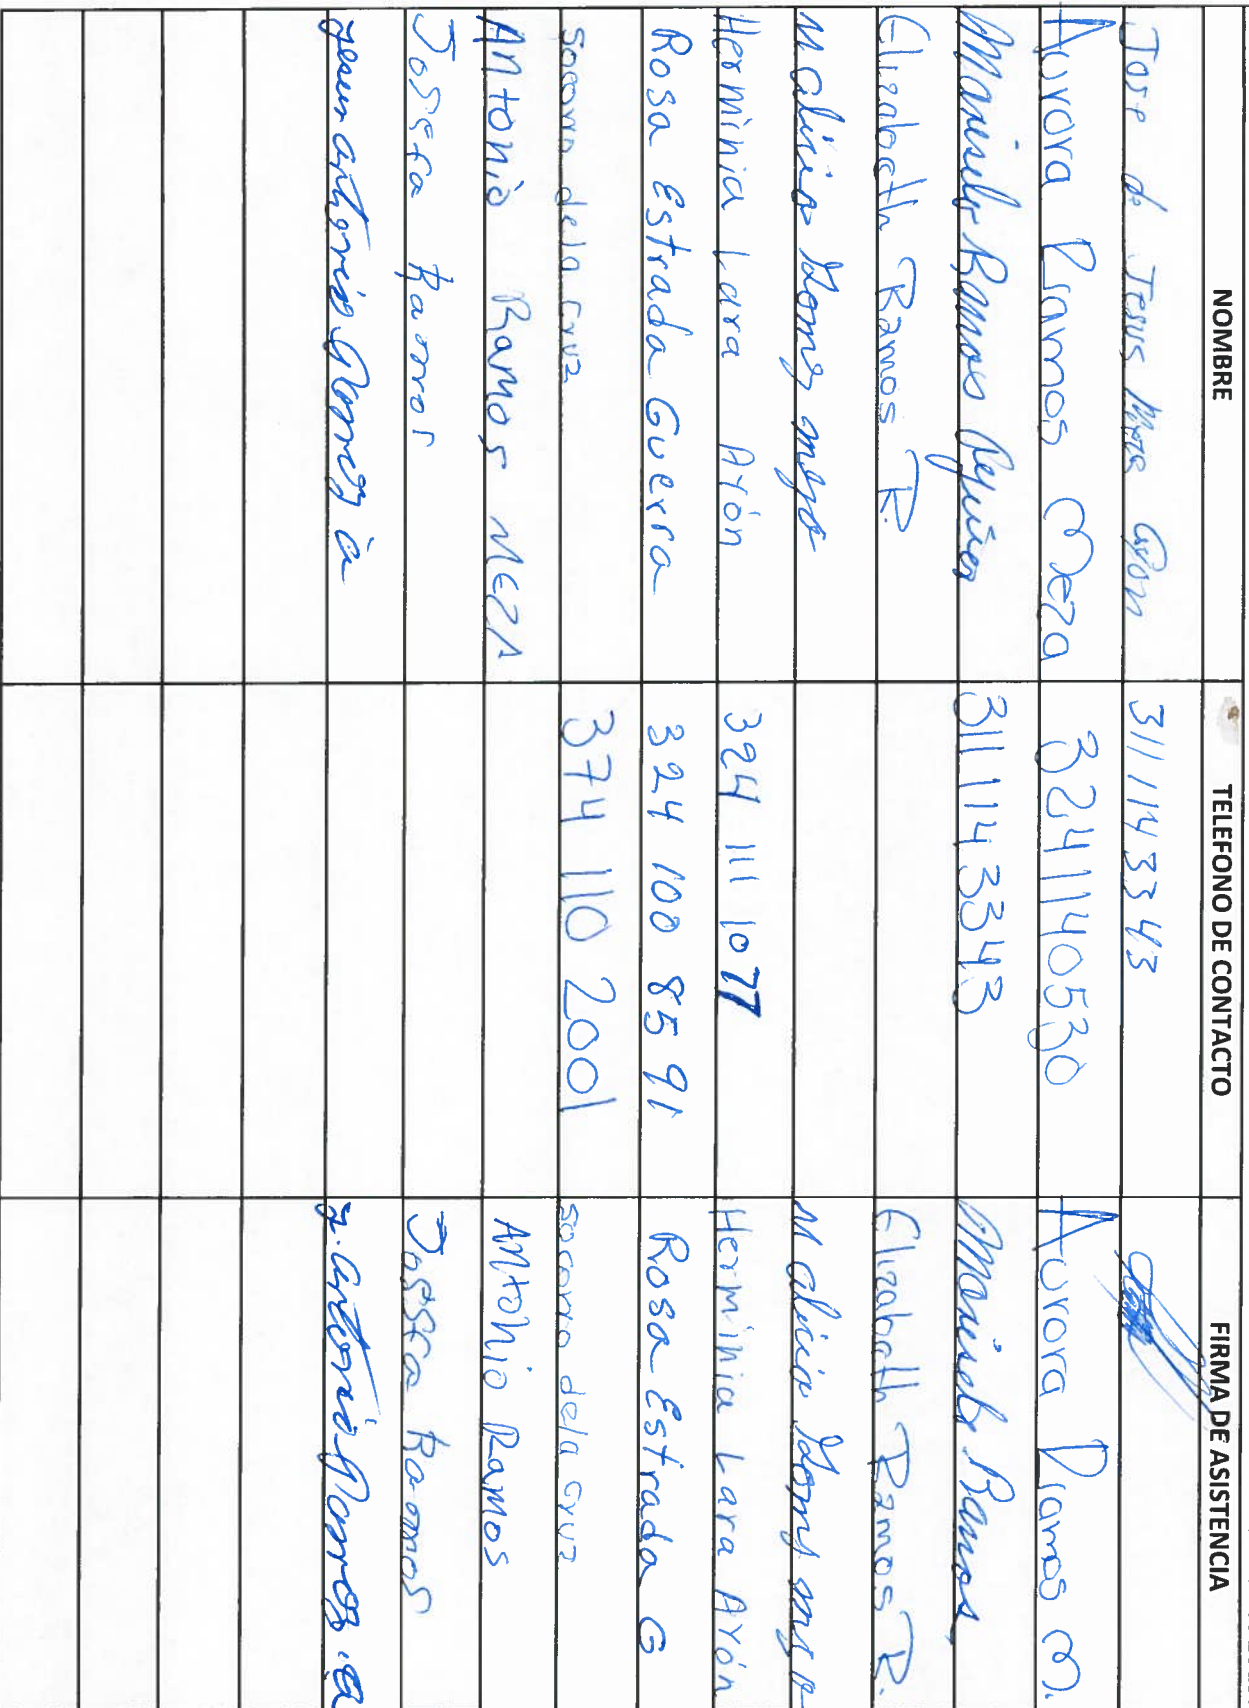 NOMBRE TELEFONO DE CONTACTO FIRMA DE ASISTENCIA
Jose de Jesus Meza 311 114 33 43
Aurora Ramos Meza 3241140530 Aurora Ramos M.
Marisela Ramos 311 114 3343 Marisela Ramos
Elizabeth Ramos R. Elizabeth Ramos R.
Maricio Gomez
Herminia Lara Ayón 324 111 1077 Herminia Lara Ayón
Rosa Estrada Guerra 324 100 85 91 Rosa Estrada G
Socorro de la Cruz 374 110 2001 Socorro de la Cruz
Antonio Ramos MEZA Antonio Ramos
Josefa Ramos Josefa Ramos
antonio J. antonio